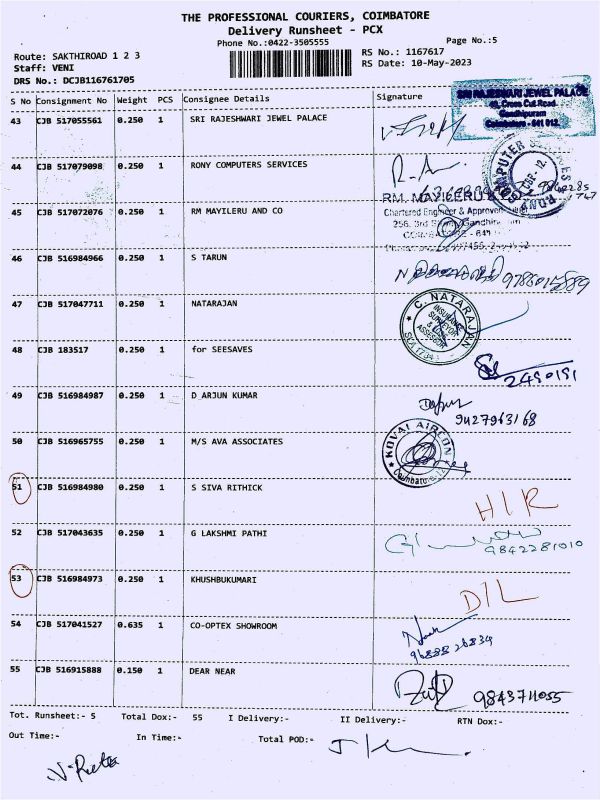 THE PROFESSIONAL COURIERS, COIMBATORE
Delivery Runsheet - PCX
Phone No.:0422-3505555
Page No.:5
Route: SAKTHIROAD 1 2 3
RS No.: 1167617
Staff: VENI
RS Date: 10-May-2023
DRS No.: DCJB116761705
S No Consignment No Weight PCS Consignee Details Signature
SRI RAJESHWARI JEWEL PALACE
Cross Cut Road
Gandhipuram
Coimbatore - 641 012
43 CJB 517055561 0.250 1 SRI RAJESHWARI JEWEL PALACE
44 CJB 517079098 0.250 1 RONY COMPUTERS SERVICES
RM. MAYILERU &
45 CJB 517072076 0.250 1 RM MAYILERU AND CO
Chartered Engineer & Approved
46 CJB 516984966 0.250 1 S TARUN
9786015889
47 CJB 517047711 0.250 1 NATARAJAN
C. NATARAJAN
INSURANCE SURVEYOR & LOSS ASSESSOR
48 CJB 183517 0.250 1 for SEESAVES
2490191
49 CJB 516984987 0.250 1 D ARJUN KUMAR
9427963168
50 CJB 516965755 0.250 1 M/S AVA ASSOCIATES
KOVAI AIRCON
Coimbatore-12
51 CJB 516984980 0.250 1 S SIVA RITHICK
HIR
52 CJB 517043635 0.250 1 G LAKSHMI PATHI
9842281010
53 CJB 516984973 0.250 1 KHUSHBUKUMARI
D/L
54 CJB 517041527 0.635 1 CO-OPTEX SHOWROOM
9688826834
55 CJB 516915888 0.150 1 DEAR NEAR
9843711055
Tot. Runsheet:- 5 Total Dox:- 55 I Delivery:- II Delivery:- RTN Dox:-
Out Time:- In Time:- Total POD:-